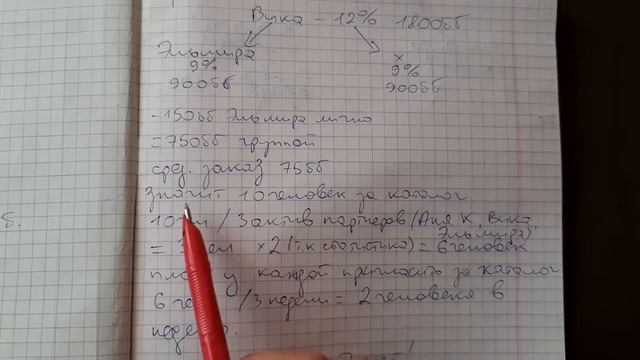 Вика – 12% 1800бб
Эльмира х
9% 9%
900бб 900бб
- 150бб Эльмира лично
= 750бб группой
сред. заказ 75бб
значит 10 человек за каталог
10чел / 3 актив партнеров (Аня К, Вика,
Эльмира)
= 3чел х 2 (т.к статистика) = 6человек
план у каждой пригласить за каталог
6 чел /3 недели = 2человека в
неделю.
б.